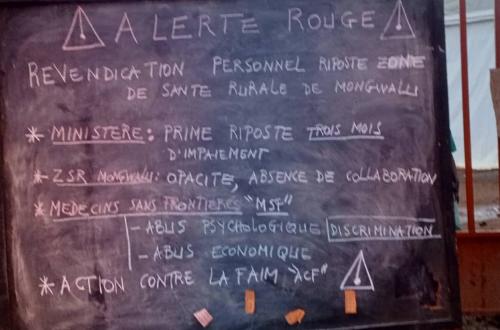 ALERTE ROUGE
REVENDICATION PERSONNEL RIPOSTE ZONE
DE SANTE RURALE DE MONGWALLI
* MINISTERE: PRIME RIPOSTE TROIS MOIS
D'IMPAIEMENT
* ZSR MONGWALLI: OPACITE, ABSENCE DE COLLABORATION
* MEDECINS SANS FRONTIERES "MSF"
- ABUS PSYCHOLOGIQUE DISCRIMINATION
- ABUS ECONOMIQUE
* ACTION CONTRE LA FAIM "ACF"